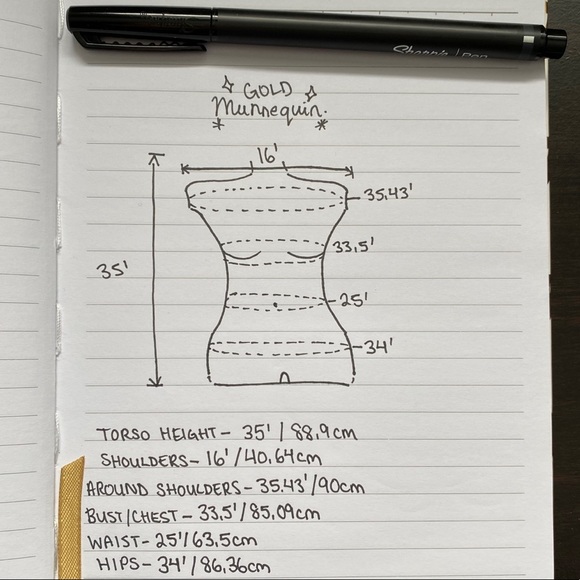 Sharpie | Pen
GOLD
Munnequin.
16'
35.43'
33.5'
35'
25'
34'
TORSO HEIGHT - 35' / 88.9cm
SHOULDERS - 16' / 40.64cm
AROUND SHOULDERS - 35.43' / 90cm
BUST/CHEST - 33.5' / 85.09cm
WAIST - 25' / 63.5cm
HIPS - 34' / 86.36cm